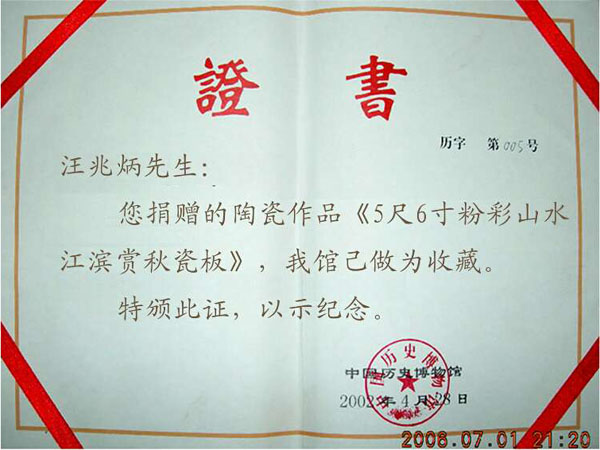 證 書
历字 第005号
汪兆炳先生：
您捐赠的陶瓷作品《5尺6寸粉彩山水
江滨赏秋瓷板》，我馆己做为收藏。
特颁此证，以示纪念。
中国历史博物馆
2002年4月28日
2006.07.01 21:20